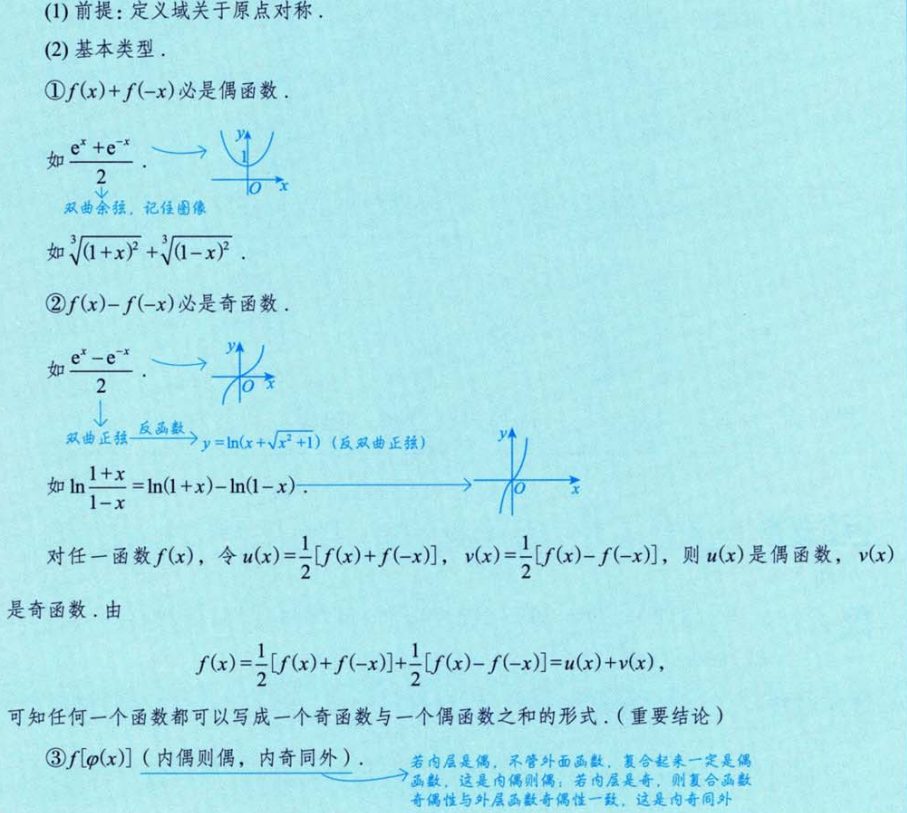 (1) 前提：定义域关于原点对称．
(2) 基本类型．
①f(x)+f(−x)必是偶函数．
如 (eˣ+e⁻ˣ)/2 ．
y
1
O
x
双曲余弦，记住图像
如 ∛(1+x)² + ∛(1−x)² ．
②f(x)−f(−x)必是奇函数．
如 (eˣ−e⁻ˣ)/2 ．
y
O
x
双曲正弦 反函数 y=ln(x+√(x²+1))（反双曲正弦）
如 ln (1+x)/(1−x) =ln(1+x)−ln(1−x)．
y
O
x
对任一函数f(x)，令u(x)=1/2[f(x)+f(−x)]，v(x)=1/2[f(x)−f(−x)]，则u(x)是偶函数，v(x)
是奇函数．由
f(x)=1/2[f(x)+f(−x)]+1/2[f(x)−f(−x)]=u(x)+v(x)，
可知任何一个函数都可以写成一个奇函数与一个偶函数之和的形式．（重要结论）
③f[φ(x)]（内偶则偶，内奇同外）．
若内层是偶，不管外面函数，复合起来一定是偶
函数，这是内偶则偶；若内层是奇，则复合函数
奇偶性与外层函数奇偶性一致，这是内奇同外